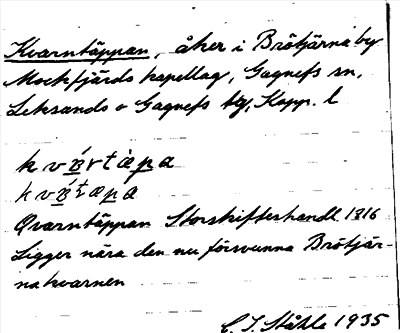 Kvarntäppan, åker i Brötjärna by
Mockfjärds kapellag, Gagnefs sn,
Leksands o Gagnefs tg, Kopp. l
Qvarntäppan Storskifteshandl. 1816
Ligger nära den nu försvunna Brötjär-
nakvarnen
C. I. Ståhle 1935